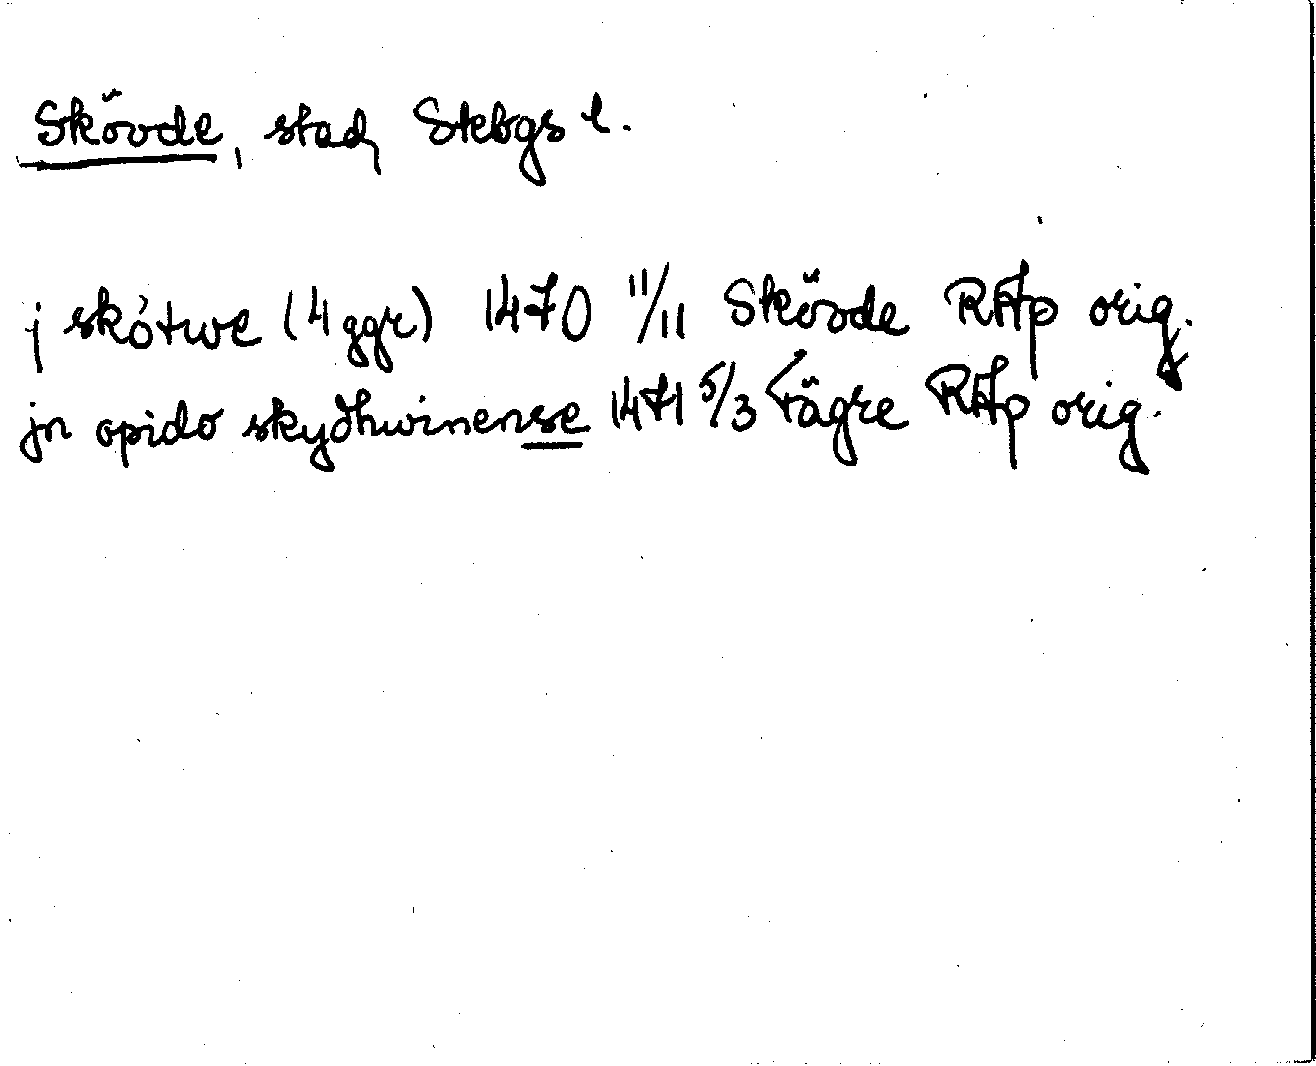 Skövde, stad, Skbgs l.
j skótwe (4 ggr) 1470 11/11 Skövde RAp orig.
jn opido skydhwinense 1471 5/3 Fägre RAp orig.